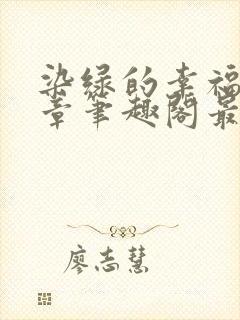 染绿的幸福
章笔趣阁最
廖志慧